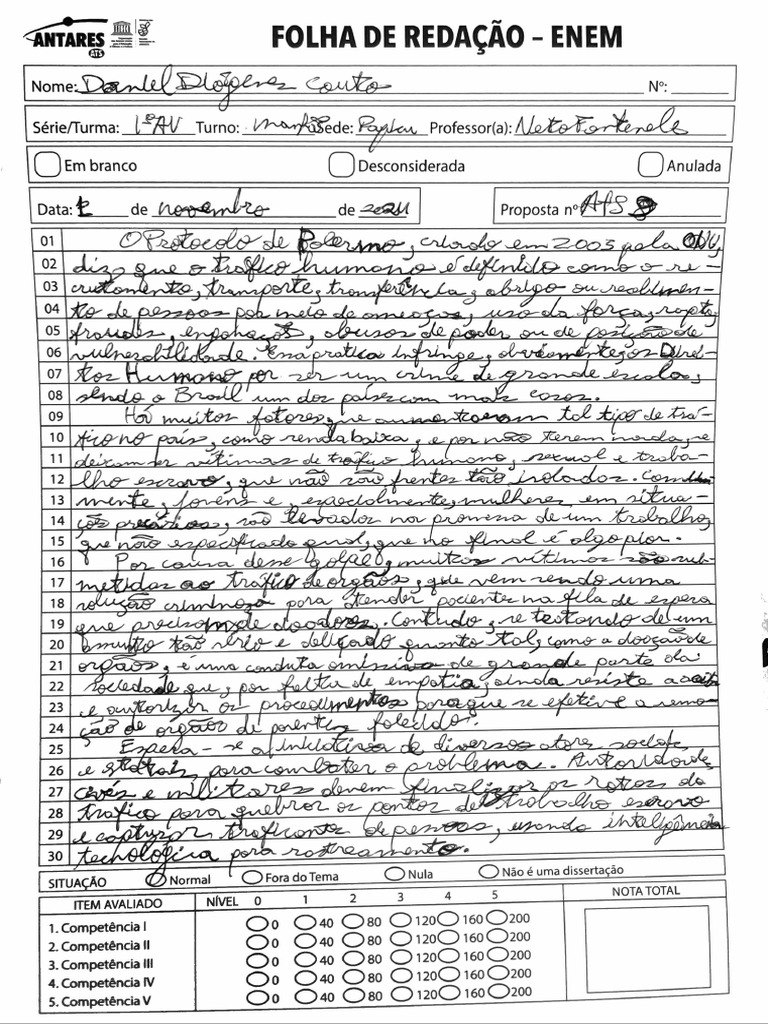 ANTARES
ATS
FOLHA DE REDAÇÃO – ENEM
Nome: Daniel Diógenes Couto Nº:
Série/Turma: 1ª AV Turno: Manhã Sede: Papicu Professor(a): Neto Fontenele
Em branco Desconsiderada Anulada
Data: 1 de novembro de 2021 Proposta nº
01 O Protocolo de Palermo, criado em 2003 pela ONU,
02 diz que o tráfico humano é definido como o re-
03 crutamento, transporte, transferência, abrigo ou recolhimen-
04 to de pessoas por meio de ameaças, uso da força, rapto,
05 fraudes, enganações, abusos de poder ou de posição de
06 vulnerabilidade. Essa pratica infringe, obviamente, os Direi-
07 tos Humano por ser um crime de grande escala,
08 sendo o Brasil um dos países com mais casos.
09 Há muitos fatores, que aumentaram tal tipo de trá-
10 fico no país, como renda baixa, e por não terem nada, se
11 deixam ser vítimas de tráfico humano, sexual e traba-
12 lho escravo, que não são frentes tão isoladas. Comu
13 mente, jovens e, especialmente, mulheres em situa-
14 ções precárias, são levados na promessa de um trabalho,
15 que não especificado qual, que no final é algo pior.
16 Por causa desse golpe, muitas vítimas são sub-
17 metidas ao tráfico de orgãos, que vem sendo uma
18 solução criminosa para atender pacientes na fila de espera
19 que precisam de doadores. Contudo, se tratando de um
20 assunto tão sério e delicado quanto tal, como a doação de
21 orgãos, é uma conduta omissiva de grande parte da
22 sociedade que, por falta de empatia, ainda resiste a
23 e autorizar os procedimentos para que se efetive a remo-
24 ção de orgãos de parentes falecidos.
25 Espera-se a iniciativa de diversos atores sociais
26 e statais, para combater o problema. Autoridade
27 civis e militares devem finalizar as rotas do
28 trafico para quebrar os pontos de trabalho escravo
29 e capturar traficante de pessoas, usando inteligência
30 tecnológica para rastreamento.
SITUAÇÃO Normal Fora do Tema Nula Não é uma dissertação
ITEM AVALIADO NÍVEL 0 1 2 3 4 5 NOTA TOTAL
1. Competência I 0 40 80 120 160 200
2. Competência II 0 40 80 120 160 200
3. Competência III 0 40 80 120 160 200
4. Competência IV 0 40 80 120 160 200
5. Competência V 0 40 80 120 160 200